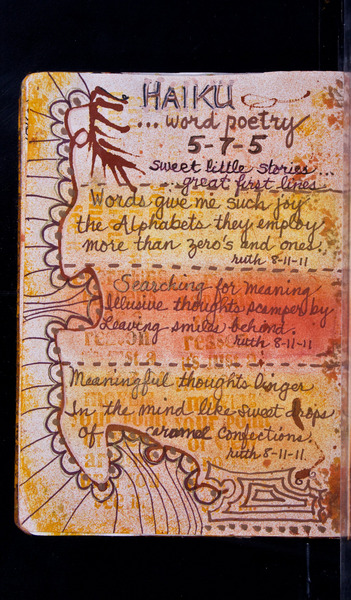 HAIKU
... word poetry
5-7-5
sweet little stories...
great first lines
Words give me such joy
the Alphabets they employ
more than zero's and ones.
ruth 8-11-11
Searching for meaning
Illusive thoughts scamper by
Leaving smiles behind.
reason
ruth 8-11-11
Meaningful thoughts linger
In the mind like sweet drops
Of caramel confections.
ruth 8-11-11